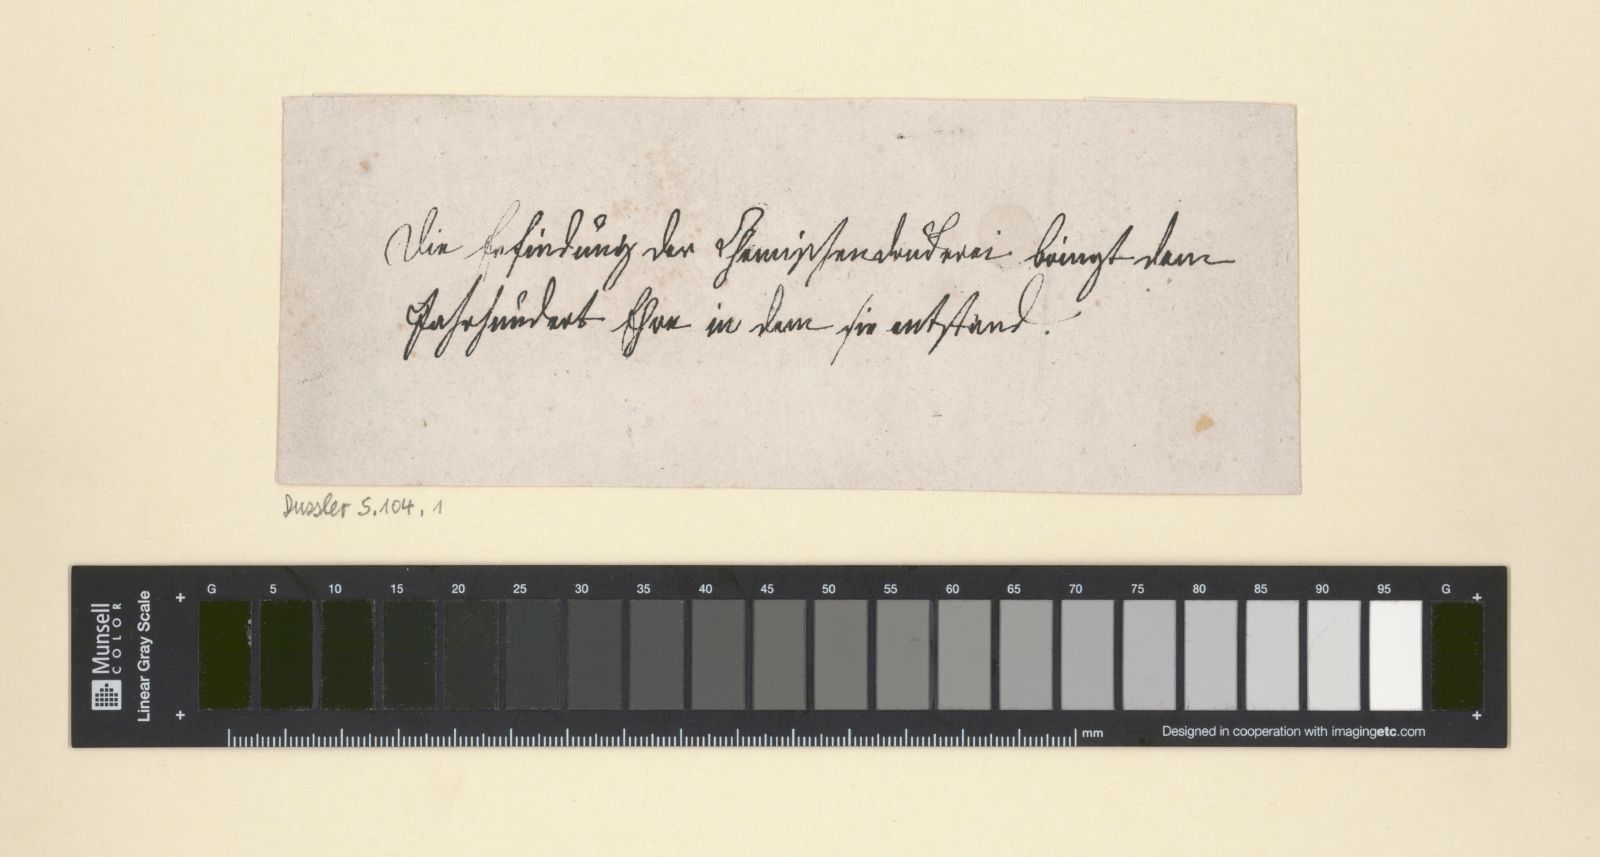 Die Erfindung der Chemischendruckerei bringt dem
Jahrhundert Ehre in dem sie entstand.
Dussler S. 104, 1
Munsell
COLOR
Linear Gray Scale
G 5 10 15 20 25 30 35 40 45 50 55 60 65 70 75 80 85 90 95 G
mm
Designed in cooperation with imagingetc.com